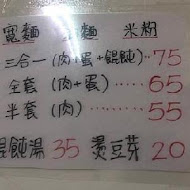 寬麵 麵 米粉
三合一(肉+蛋+餛飩)‥75
全套(肉+蛋)‥‥65
半套(肉)‥‥‥55
餛飩湯35 燙豆芽20